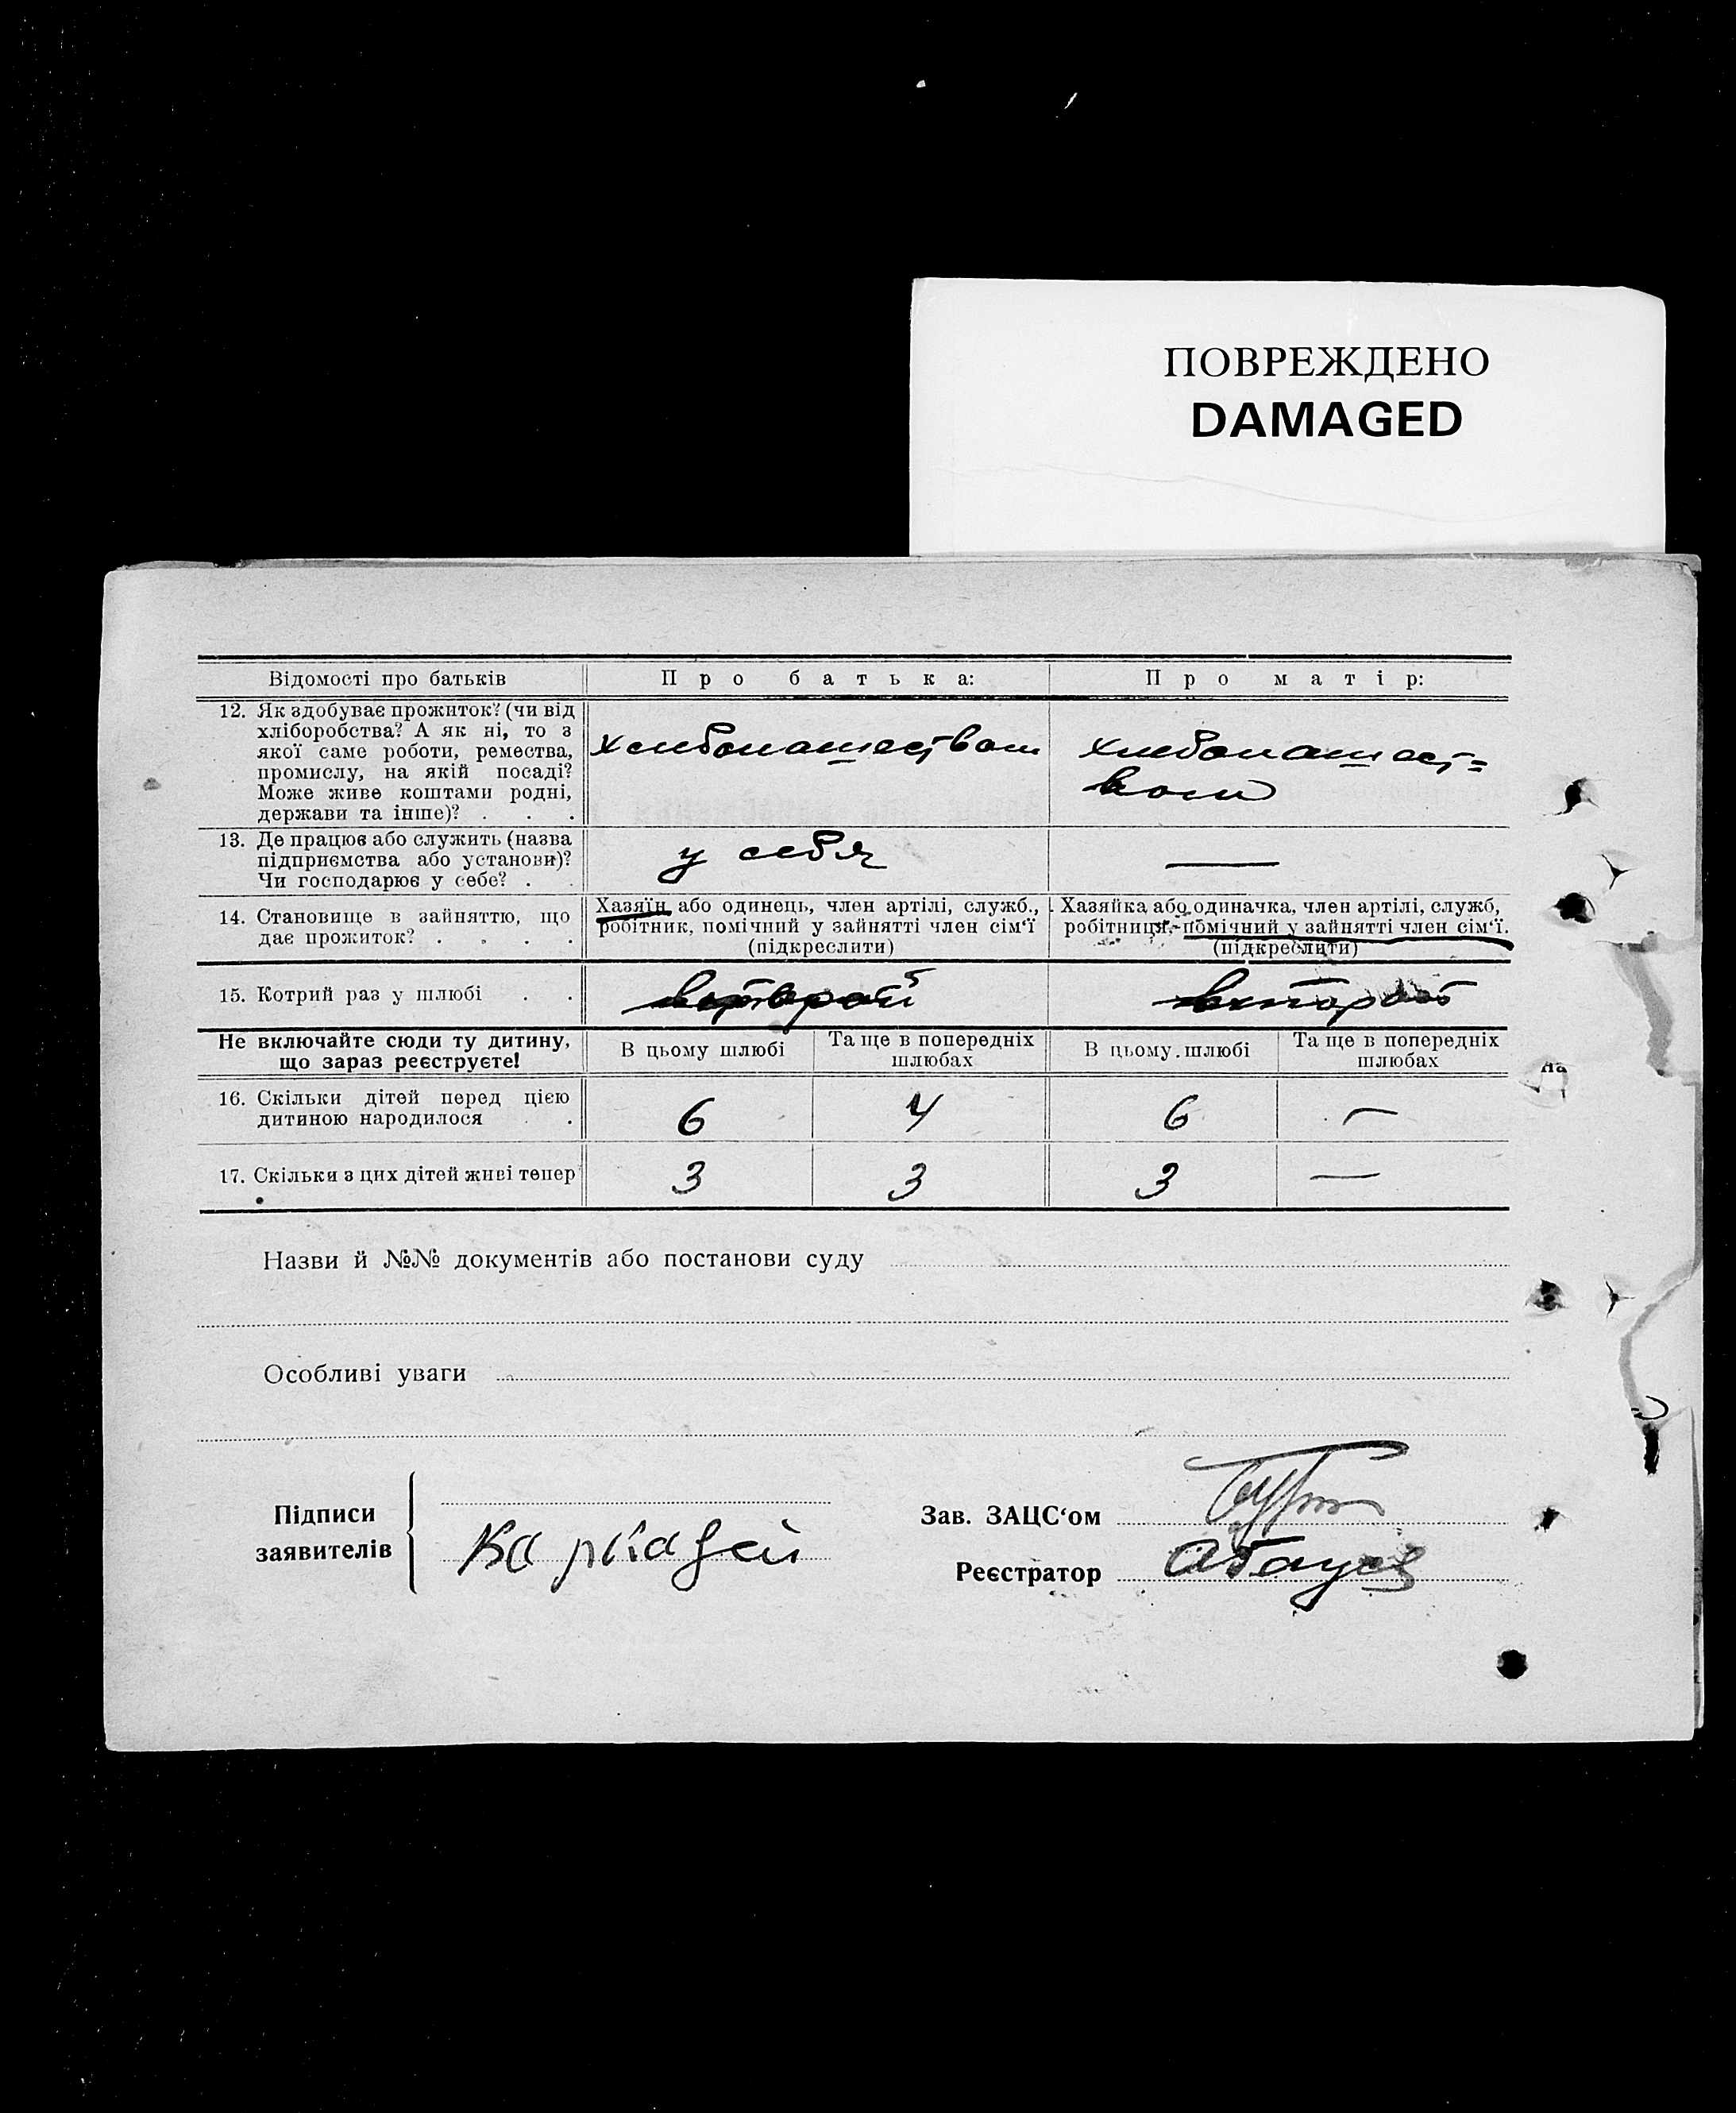 ПОВРЕЖДЕНО
DAMAGED
Відомості про батьків
Про батька:
Про матір:
12. Як здобуває прожиток? (чи від
хліборобства? А як ні, то з
якої саме роботи, ремества,
промислу, на якій посаді?
Може живе коштами родні,
держави та інше)? . . .
хлебопашеством
хлебопашест=
вом
13. Де працює або служить (назва
підприємства або установи)?
Чи господарює у себе? . .
у себя
—
14. Становище в зайняттю, що
дає прожиток? . . . .
Хазяїн або одинець, член артілі, служб.,
робітник, помічний у зайнятті член сім'ї
(підкреслити)
Хазяйка або одиначка, член артілі, служб,
робітниця, помічний у зайнятті член сім'ї.
(підкреслити)
15. Котрий раз у шлюбі . .
второй
второй
Не включайте сюди ту дитину,
що зараз реєструєте!
В цьому шлюбі
Та ще в попередніх
шлюбах
В цьому шлюбі
Та ще в попередніх
шлюбах
16. Скільки дітей перед цією
дитиною народилося . .
6
4
6
—
17. Скільки з цих дітей живі тепер
3
3
3
—
на
Назви й №№ документів або постанови суду
Особливі уваги
Підписи
заявителів
Зав. ЗАЦС'ом
Реєстратор